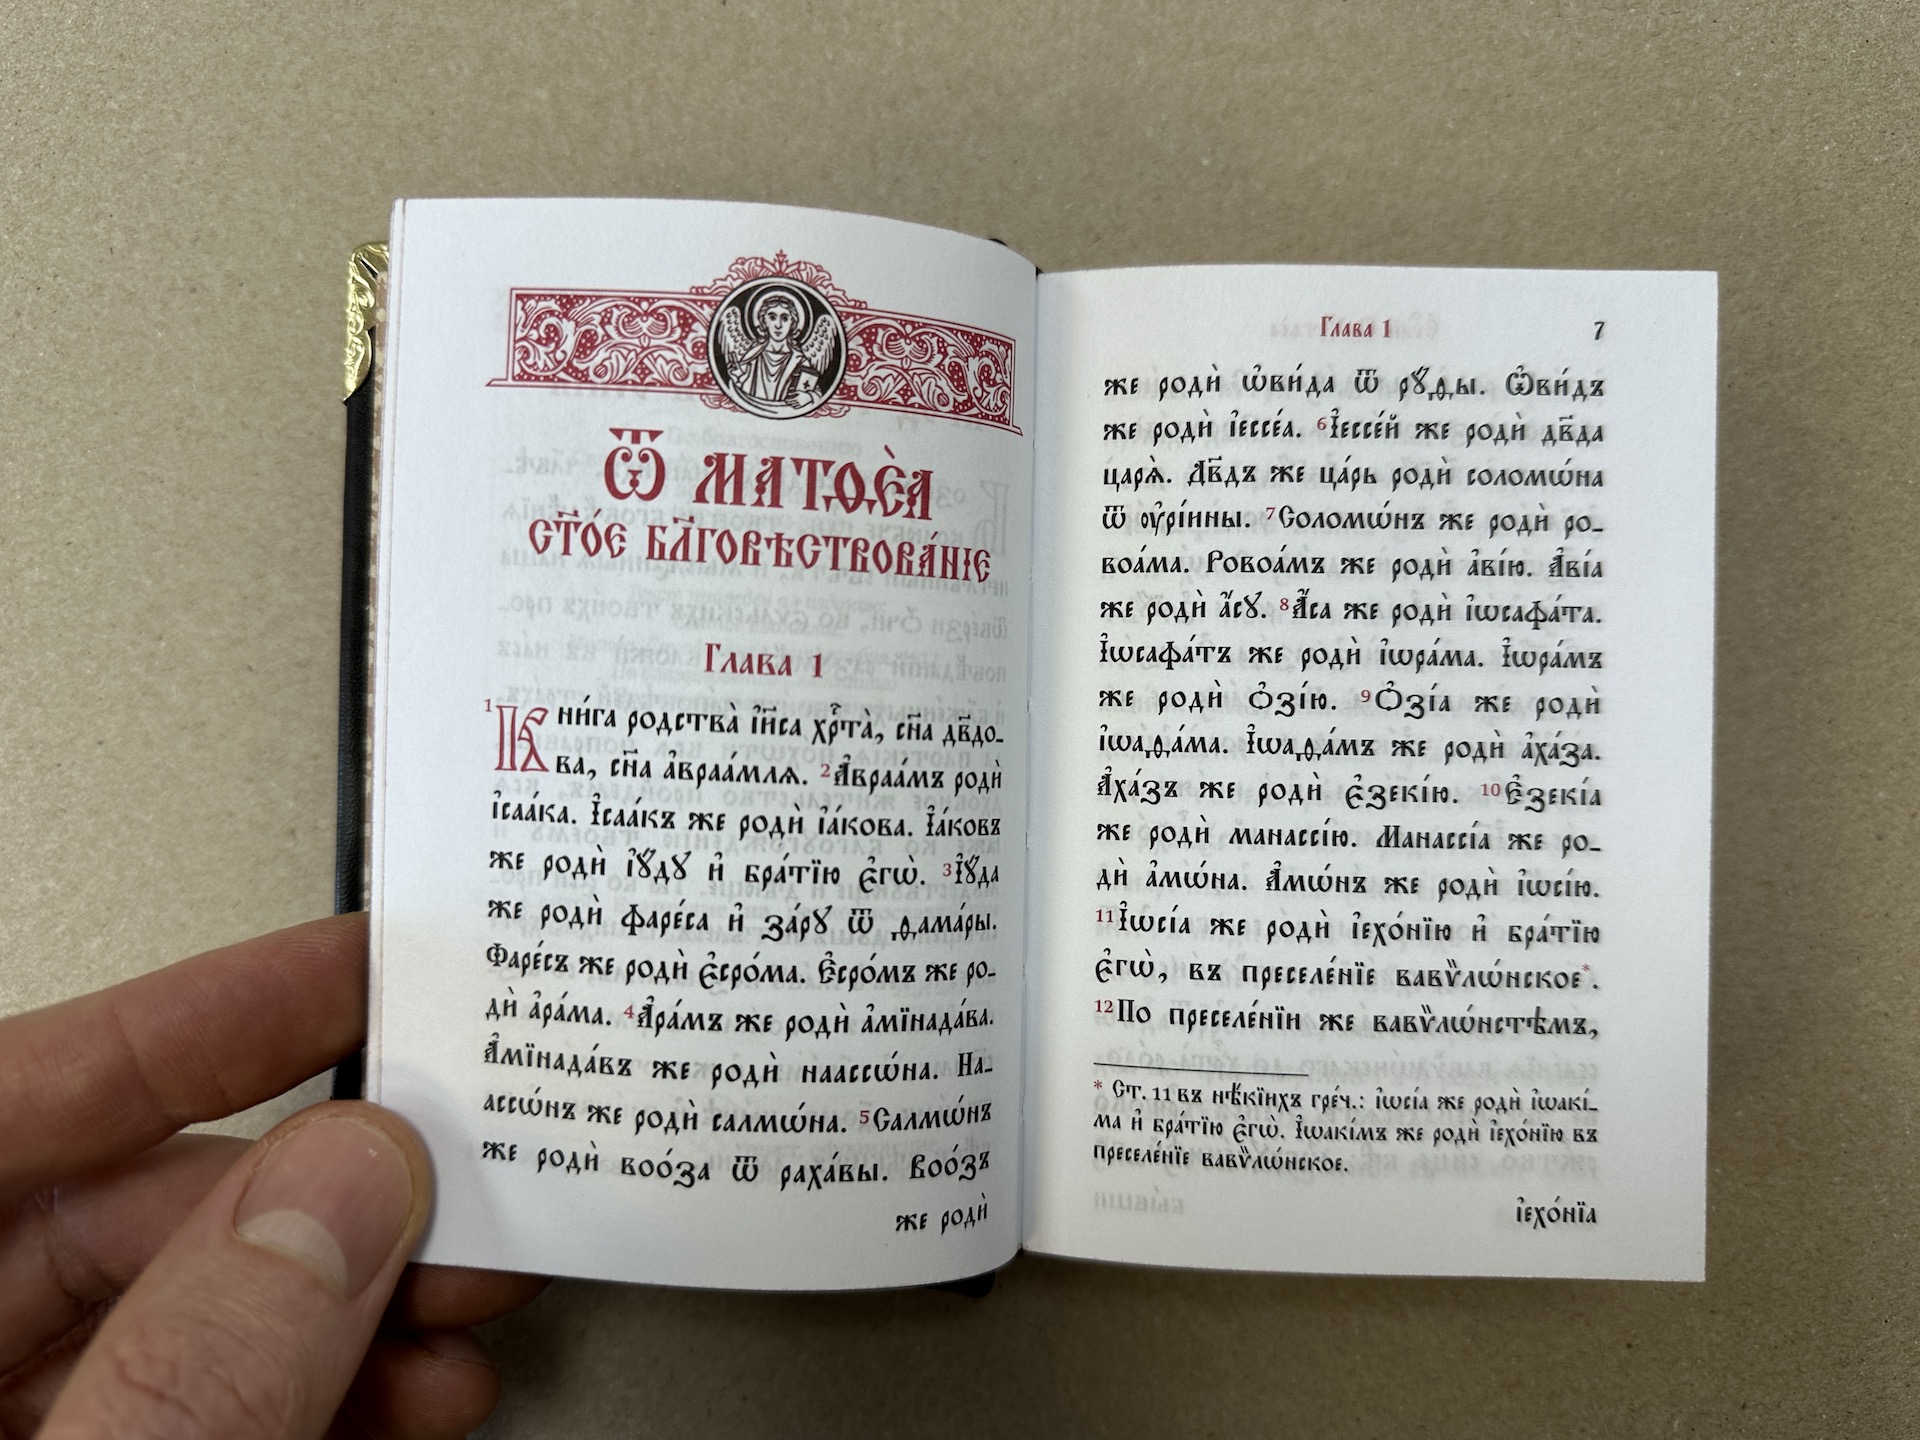 Ѿ МАТѲЕ́А
СТ҃О́Е БЛ҃ГОВѢСТВОВА́НІЕ
Глава̀ 1
1 Кни́га родства̀ і҆и҃са хрⷭ҇та̀, сн҃а дв҃до-
ва, сн҃а а҆враа́мля. 2 А҆враа́мъ родѝ
і҆саа́ка. І҆саа́къ же родѝ і҆а́кова. І҆а́ковъ
же родѝ і҆ꙋ́дꙋ и҆ бра́тїю є҆гѡ̀. 3 І҆ꙋ́да
же родѝ фаре́са и҆ за́рꙋ ѿ ѳама́ры.
Фаре́съ же родѝ є҆сро́ма. Є҆сро́мъ же ро-
дѝ а҆ра́ма. 4 А҆ра́мъ же родѝ а҆мїнада́ва.
А҆мїнада́въ же родѝ наассѡ́на. На-
ассѡ́нъ же родѝ салмѡ́на. 5 Салмѡ́нъ
же родѝ воо́за ѿ раха́вы. Воо́зъ
же родѝ
Глава̀ 1 7
же родѝ ѡ҆ви́да ѿ рꙋ́ѳы. Ѡ҆ви́дъ
же родѝ і҆ессе́а. 6 І҆ессе́й же родѝ дв҃да
царѧ̀. Дв҃дъ же ца́рь родѝ соломѡ́на
ѿ ᲂу҆рі́ины. 7 Соломѡ́нъ же родѝ ро-
воа́ма. Ровоа́мъ же родѝ а҆ві́ю. А҆ві́а
же родѝ а҆́сꙋ. 8 А҆́са же родѝ і҆ѡсафа́та.
І҆ѡсафа́тъ же родѝ і҆ѡра́ма. І҆ѡра́мъ
же родѝ ѻ҆зі́ю. 9 Ѻ҆зі́а же родѝ
і҆ѡаѳа́ма. І҆ѡаѳа́мъ же родѝ а҆ха́за.
А҆ха́зъ же родѝ є҆зекі́ю. 10 Є҆зекі́а
же родѝ манассі́ю. Манассі́а же ро-
дѝ а҆мѡ́на. А҆мѡ́нъ же родѝ і҆ѡсі́ю.
11 І҆ѡсі́а же родѝ і҆ехо́нїю и҆ бра́тїю
є҆гѡ̀, въ преселе́нїе вавѷлѡ́нское*.
12 По преселе́нїи же вавѷлѡ́нстѣмъ,
* Ст. 11 въ нѣ́кїихъ гре́ч.: і҆ѡсі́а же родѝ і҆ѡакі́-
ма и҆ бра́тїю є҆гѡ̀. І҆ѡакі́мъ же родѝ і҆ехо́нїю въ
преселе́нїе вавѷлѡ́нское.
і҆ехо́нїа